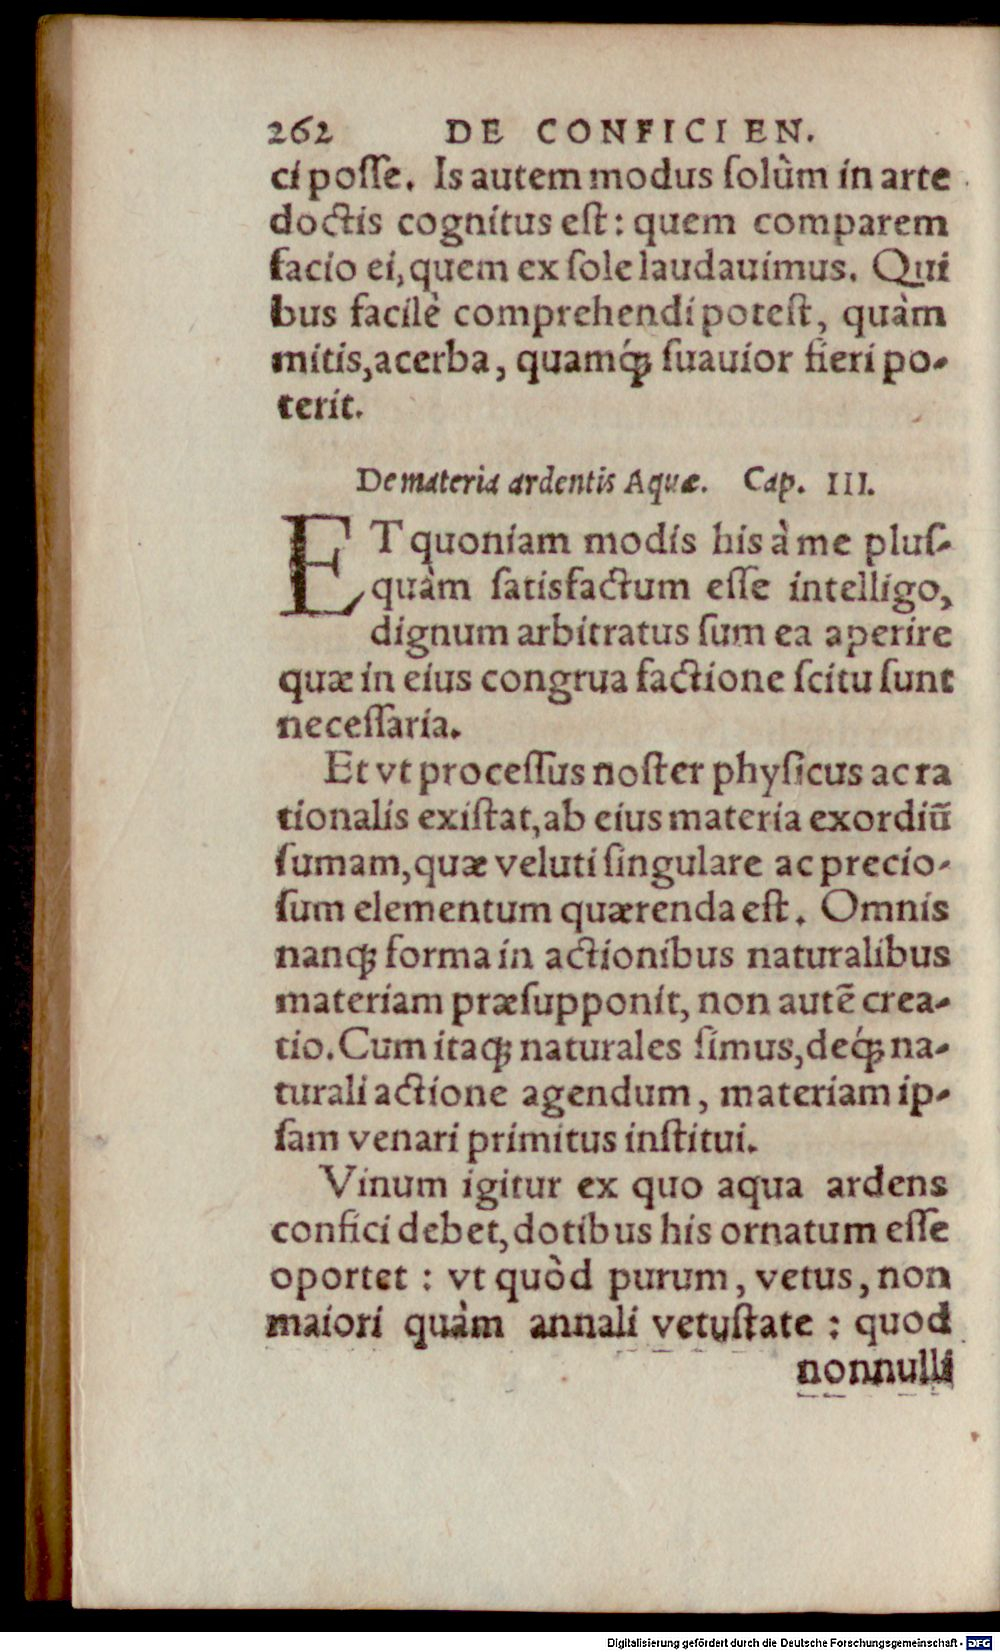 262 DE CONFICIEN.
ci poſſe. Is autem modus ſolùm in arte
doctis cognitus eſt: quem comparem
facio ei, quem ex ſole laudauimus. Qui
bus facilè comprehendi poteſt, quàm
mitis, acerba, quamq́ꝫ ſuauior fieri po-
terit.
De materia ardentis Aquæ. Cap. III.
ET quoniam modis his à me pluſ-
quàm ſatisfactum eſſe intelligo,
dignum arbitratus ſum ea aperire
quæ in eius congrua factione ſcitu ſunt
neceſſaria.
Et vt proceſſus noſter phyſicus ac ra
tionalis exiſtat, ab eius materia exordiū
ſumam, quæ veluti ſingulare ac precio-
ſum elementum quærenda eſt. Omnis
nanqꝫ forma in actionibus naturalibus
materiam præſupponit, non autē crea-
tio. Cum itaqꝫ naturales ſimus, deq́ꝫ na-
turali actione agendum, materiam ip-
ſam venari primitus inſtitui.
Vinum igitur ex quo aqua ardens
confici debet, dotibus his ornatum eſſe
oportet : vt quòd purum, vetus, non
maiori quàm annali vetuſtate : quod
nonnulli
Digitalisierung gefördert durch die Deutsche Forschungsgemeinschaft - DFG